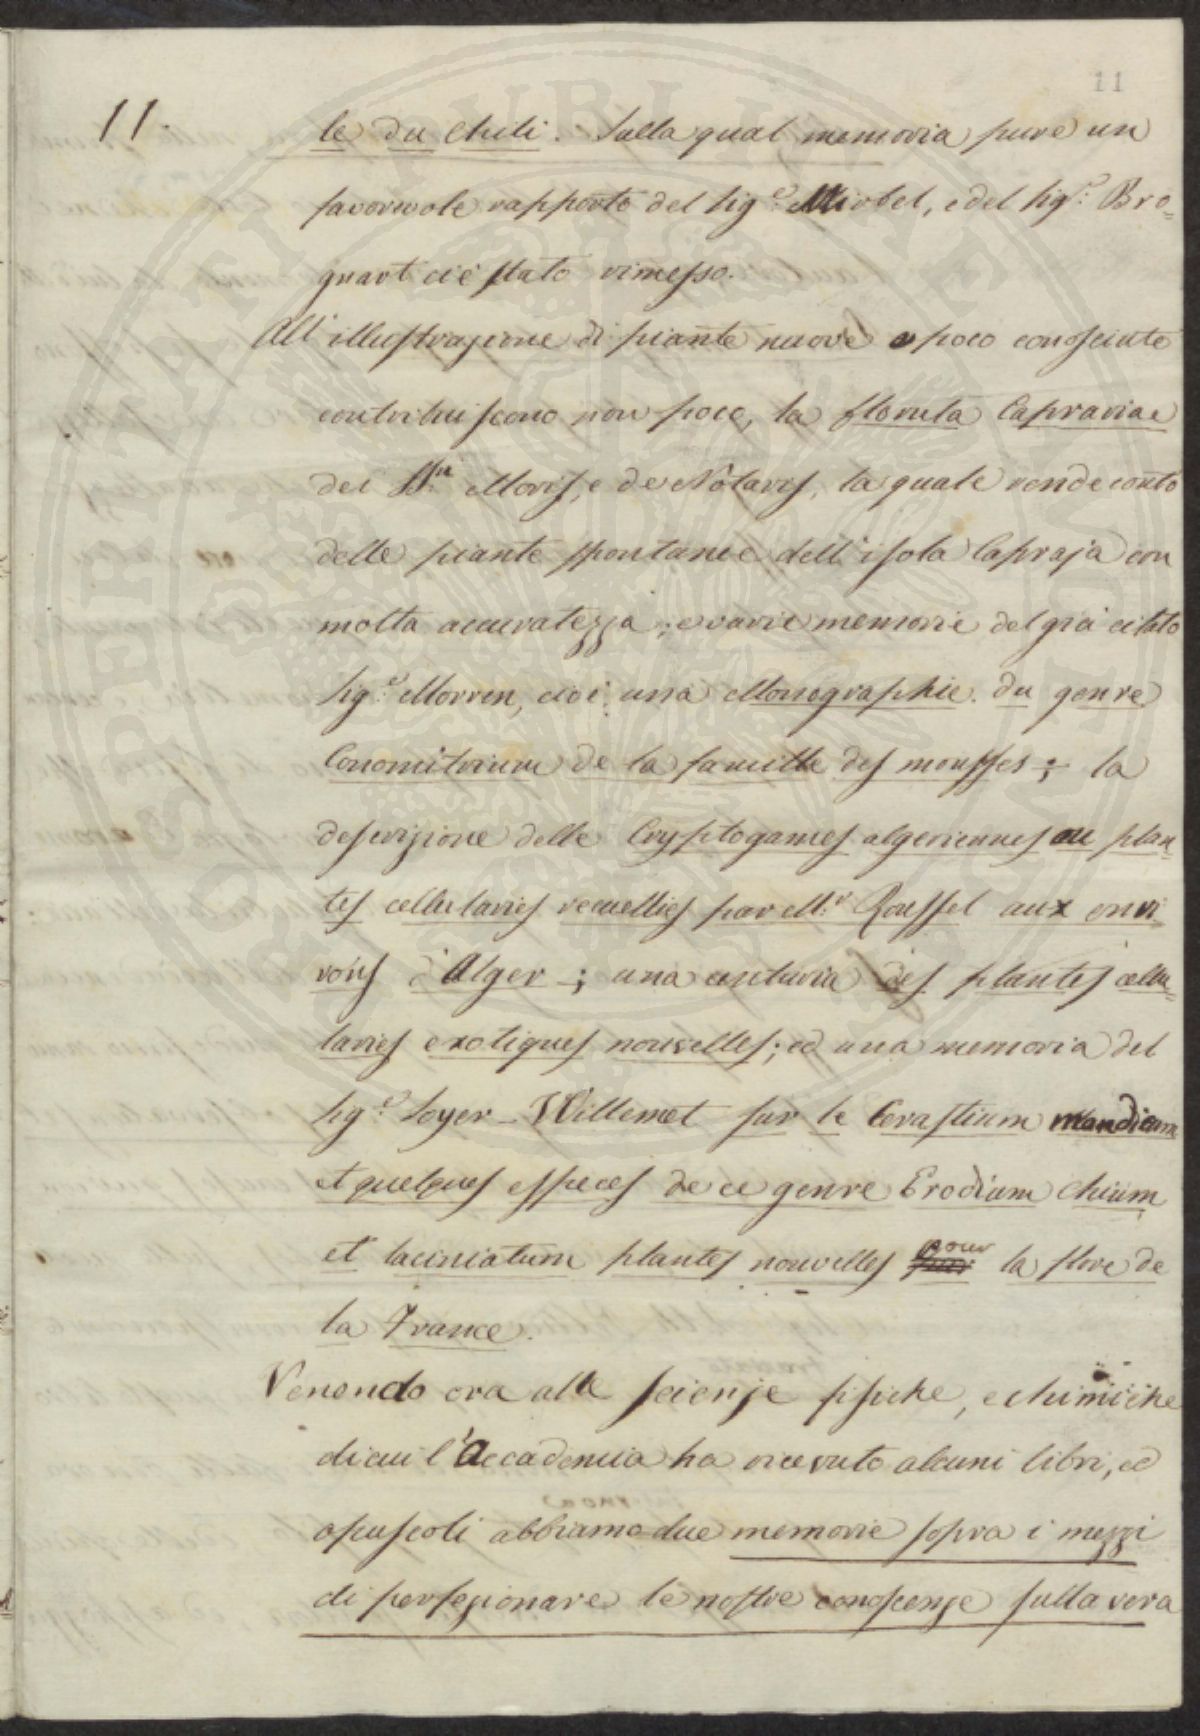 11
11.
le du Chili. Sulla qual memoria pure un
favorevole rapporto del Sig.e Mirbel, e del Sig.e Bro=
gnart ci è stato rimesso.
All' illustrazione di piante nuove o poco conosciute
contribuiscono non poco, la florula Caprariae
dei SS.ri Moris, e de Nôtaris, la quale rende conto
delle piante spontanee dell' isola Capraja con
molta accuratezza; e varie memorie del già citato
Sig.e Morren, cioè: una Monographie du genre
Conomitrium de la famille des mousses; la
descrizione delle Cryptogames algeriennes ou plan=
tes cellulaires recuellies par M.r Roussel aux envi
rons d'Alger; una centuria des plantes cellu=
laries exotiques nouvelles; ed una memoria del
Sig.e Soyer-Willemet sur le Cerastium Mandicum
et quelques especes de ce genre Erodium Chium
et laciniatum plantes nouvelles pour la flore de
la France.
Venendo ora alle scienze fisiche, e chimiche
di cui l'Accademia ha ricevuto alcuni libri, ed
opuscoli abbiamo due memorie sopra i mezzi
di perfezionare le nostre conoscenze sulla vera